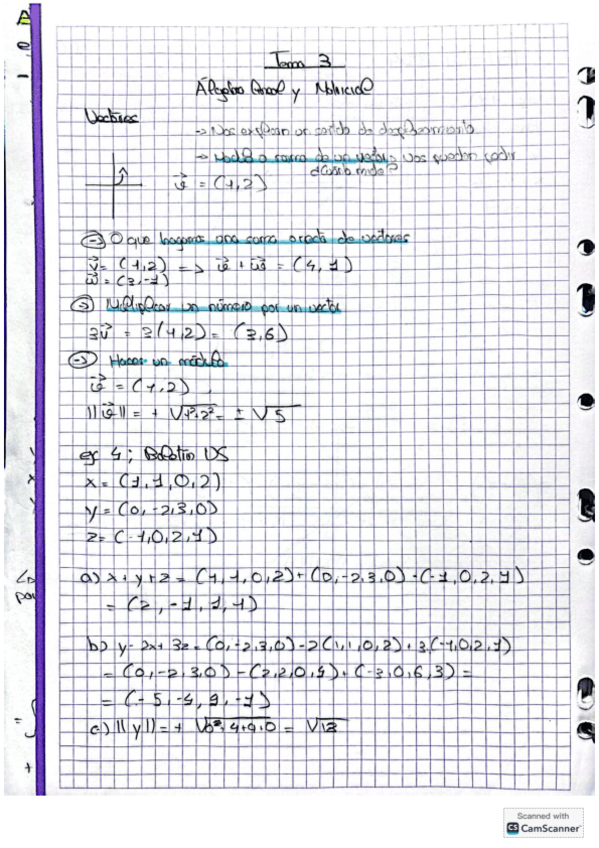 Tema 3
Álgebra lineal y Matricial
Vectores
-> Nos explican un sentido de desplazamiento
-> Módulo o norma de un vector > nos pueden pedir
v = (1,2)
cuanto mide?
-> O que hagamos una suma o resta de vectores
v = (1,2) => v + w = (4,1)
w = (3,-1)
-> Multiplicar un número por un vector
3v = 3(1,2) = (3,6)
-> Hacer un módulo
v = (1,2)
||v|| = + √1²+2² = ± √5
ej 4; Boletín VS
x = (1,1,0,2)
y = (0,-2,3,0)
z = (-1,0,2,1)
a) x+y+z = (1,1,0,2)+(0,-2,3,0)-(-1,0,2,1)
= (2,-1,1,1)
b) y-2x+3z = (0,-2,3,0)-2(1,1,0,2)+3.(-1,0,2,1)
= (0,-2,3,0)-(2,2,0,4)+(-3,0,6,3) =
= (-5,-4,9,-1)
c) ||y|| = + √0²+4+9+0 = √13
Scanned with
CS CamScanner